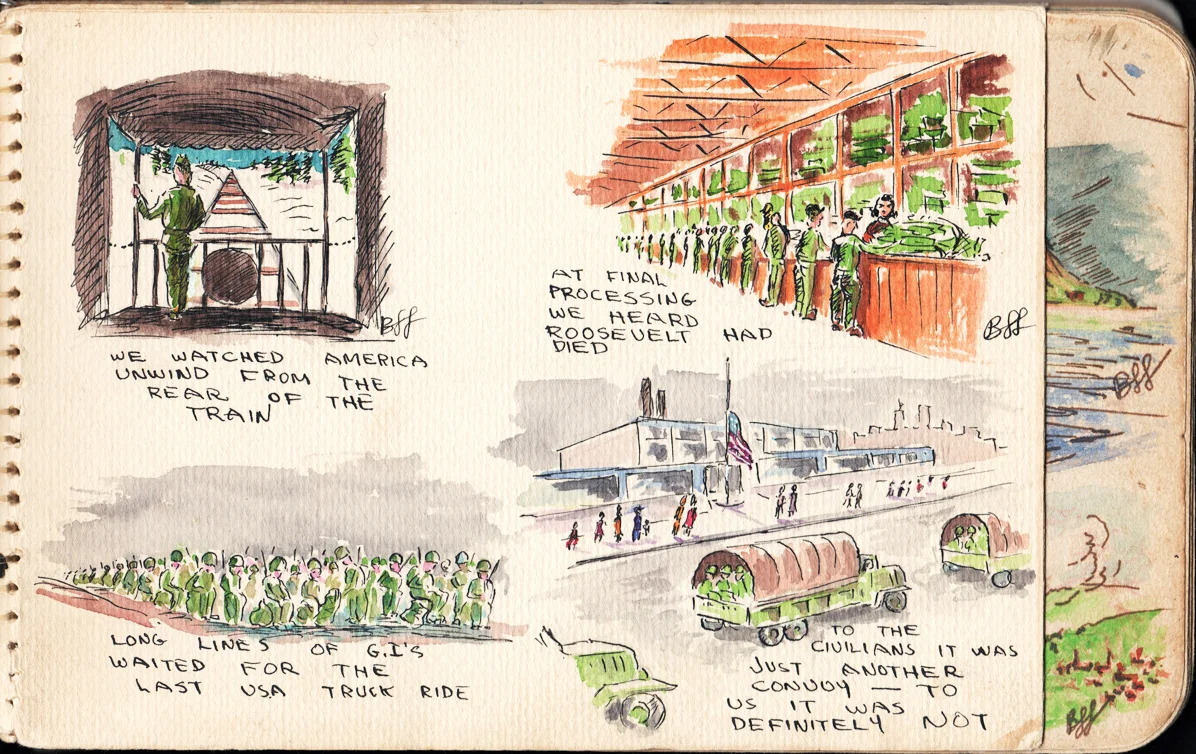 WE WATCHED AMERICA
UNWIND FROM THE
REAR OF THE
TRAIN
AT FINAL
PROCESSING
WE HEARD
ROOSEVELT HAD
DIED
LONG LINES OF G.I'S
WAITED FOR THE
LAST USA TRUCK RIDE
TO THE
CIVILIANS IT WAS
JUST ANOTHER
CONVOY — TO
US IT WAS
DEFINITELY NOT